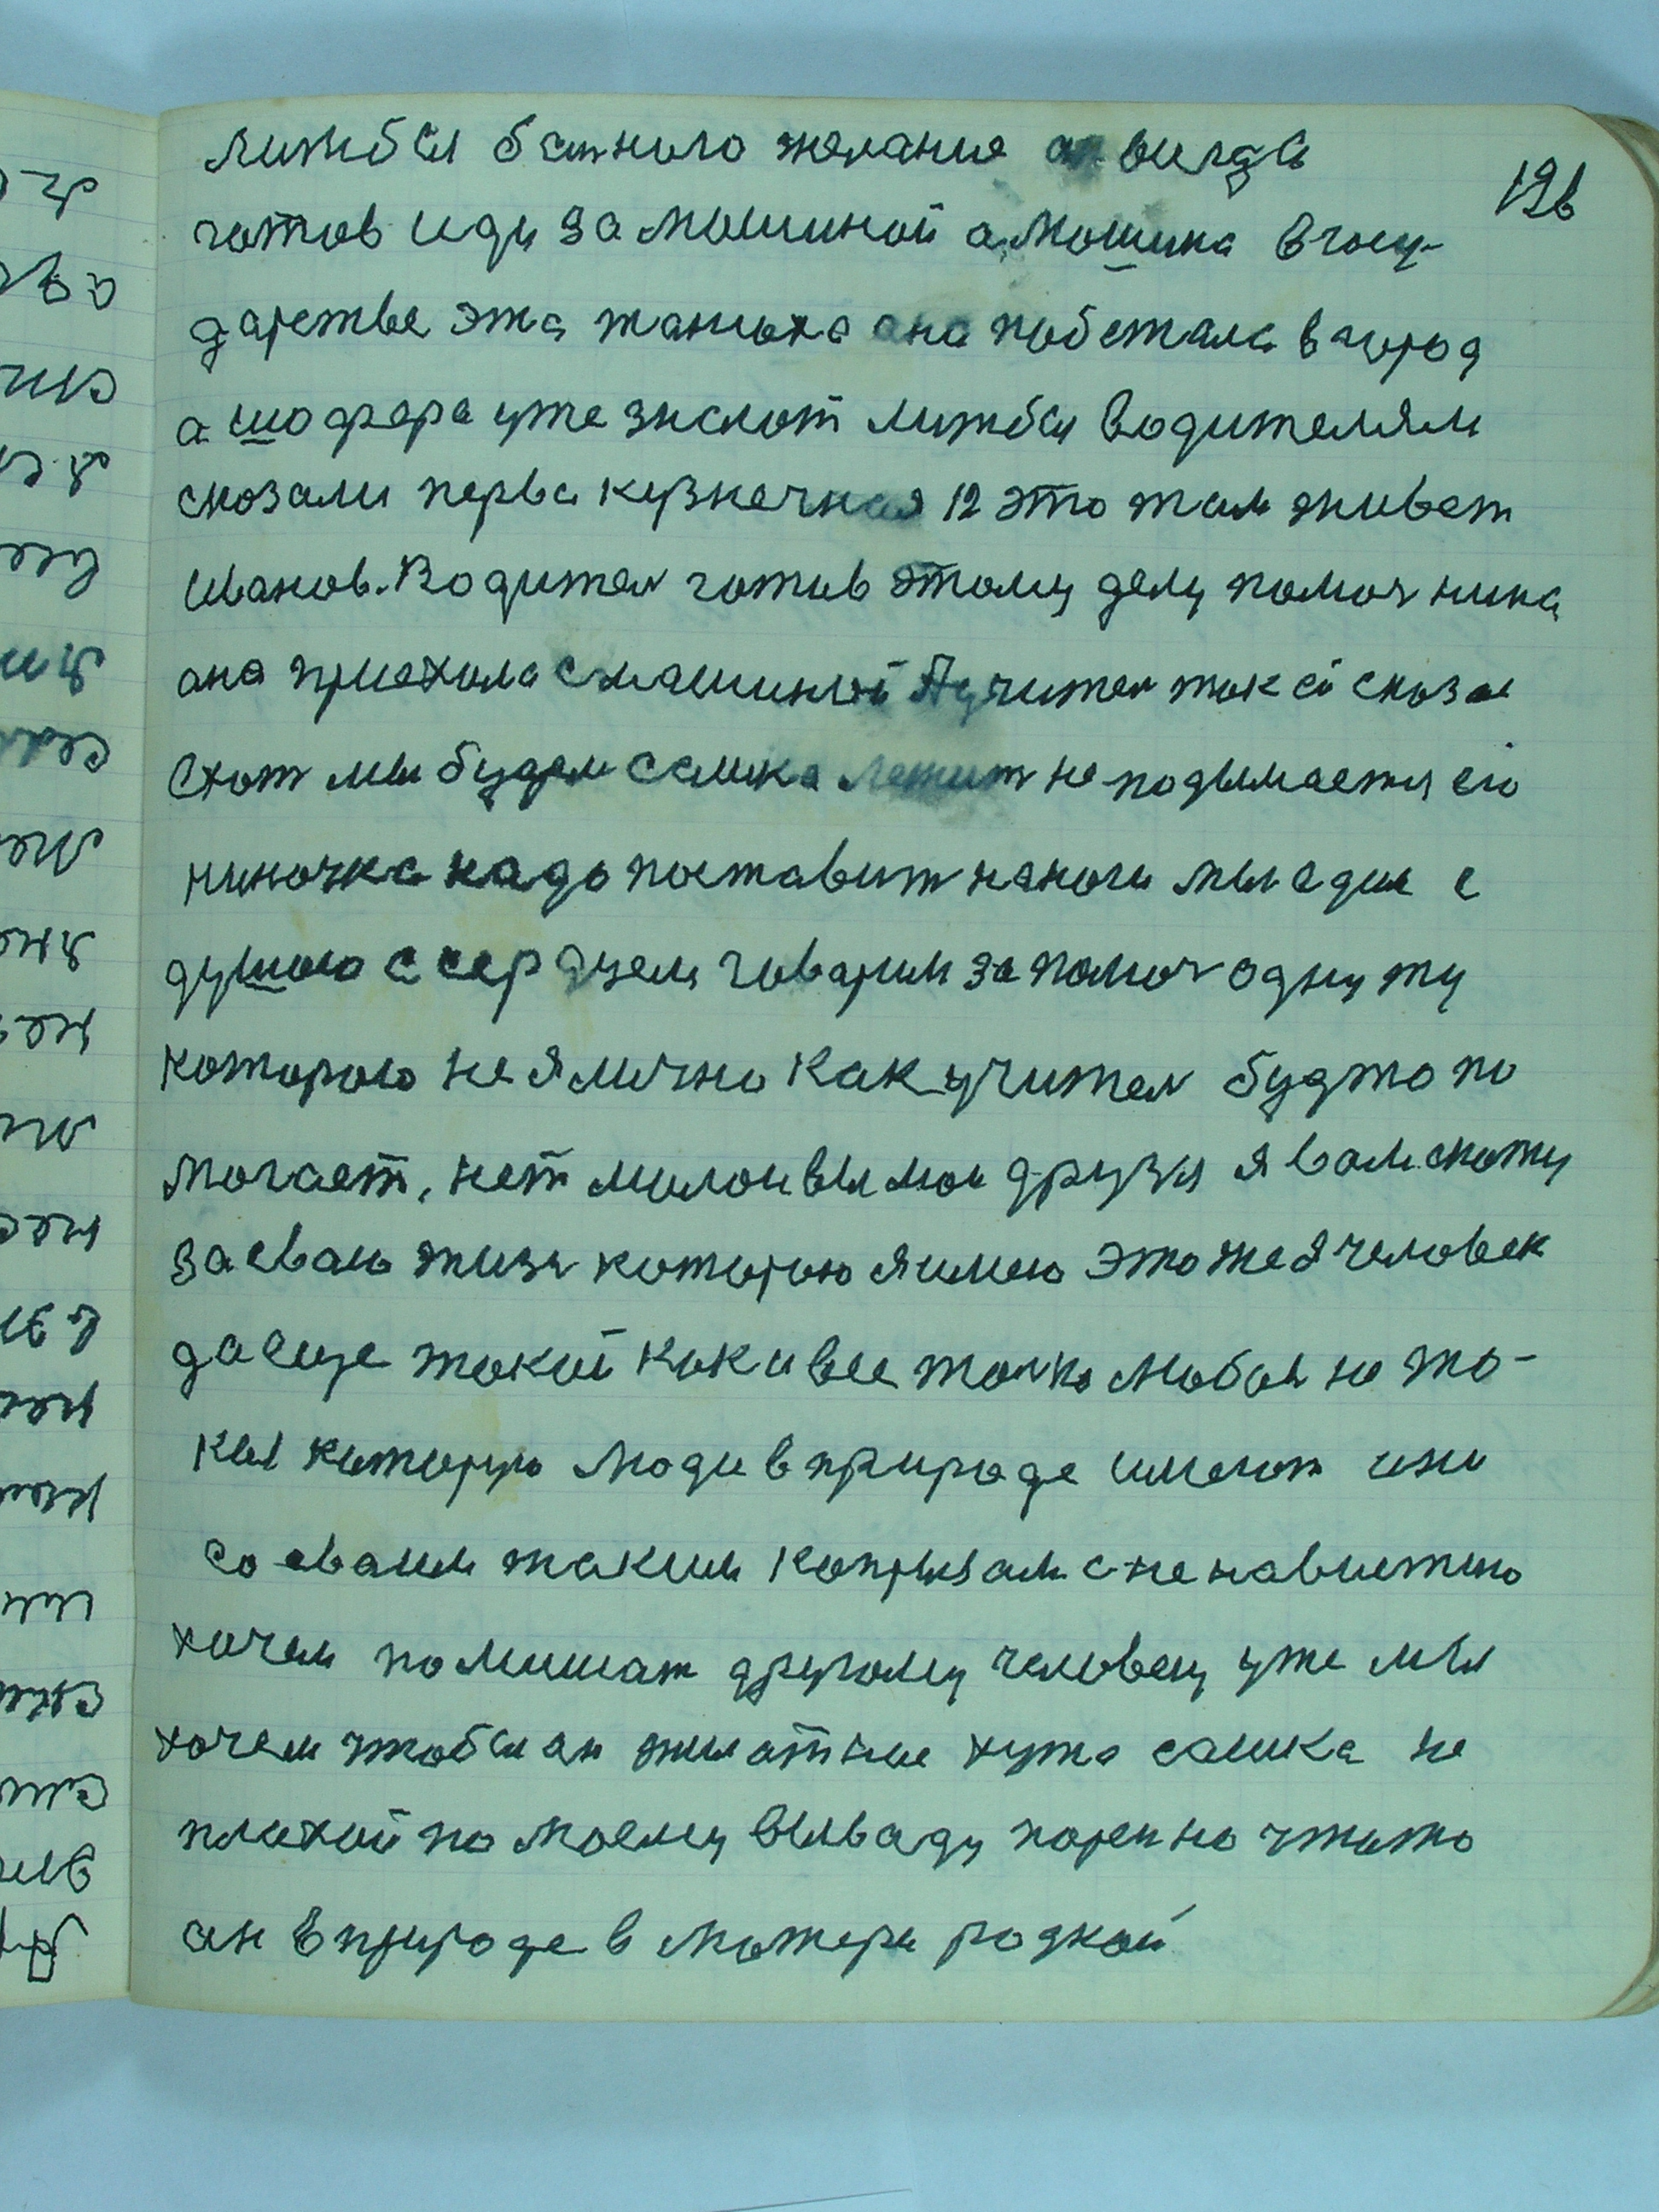 126
лижбы было у него желание ан всигда
готов иди за мошиной а мошина в госу-
дарстве эта танюха ана побежала в город
а шофера уже знают лижбы водителям
сказали перва кузнечная 12 это там живет
Иванов. Водител готов этому делу помоч нина
ана приехала смашиной А учител так ей сказал
Схот мы будем самика лежит не подымается его
ниночка надо поставит наноги мы едим с
душою с сердцем говарим за помоч одну ту
которою не я лично как учител будто по
могает, нет милои вы мои друзя я вам скажу
за сваю жизн которою я имею это же я человек
да еще такой как и все толко любовь не то-
кая которую люди в природе имеют ини
со сваим таким капризам с ненавистию
хочем помишат другому человеку уже мы
хочем чтобы ан жил отние хужа самика не
плахой по моему вываду парен но чтото
ан в природе в матери родной